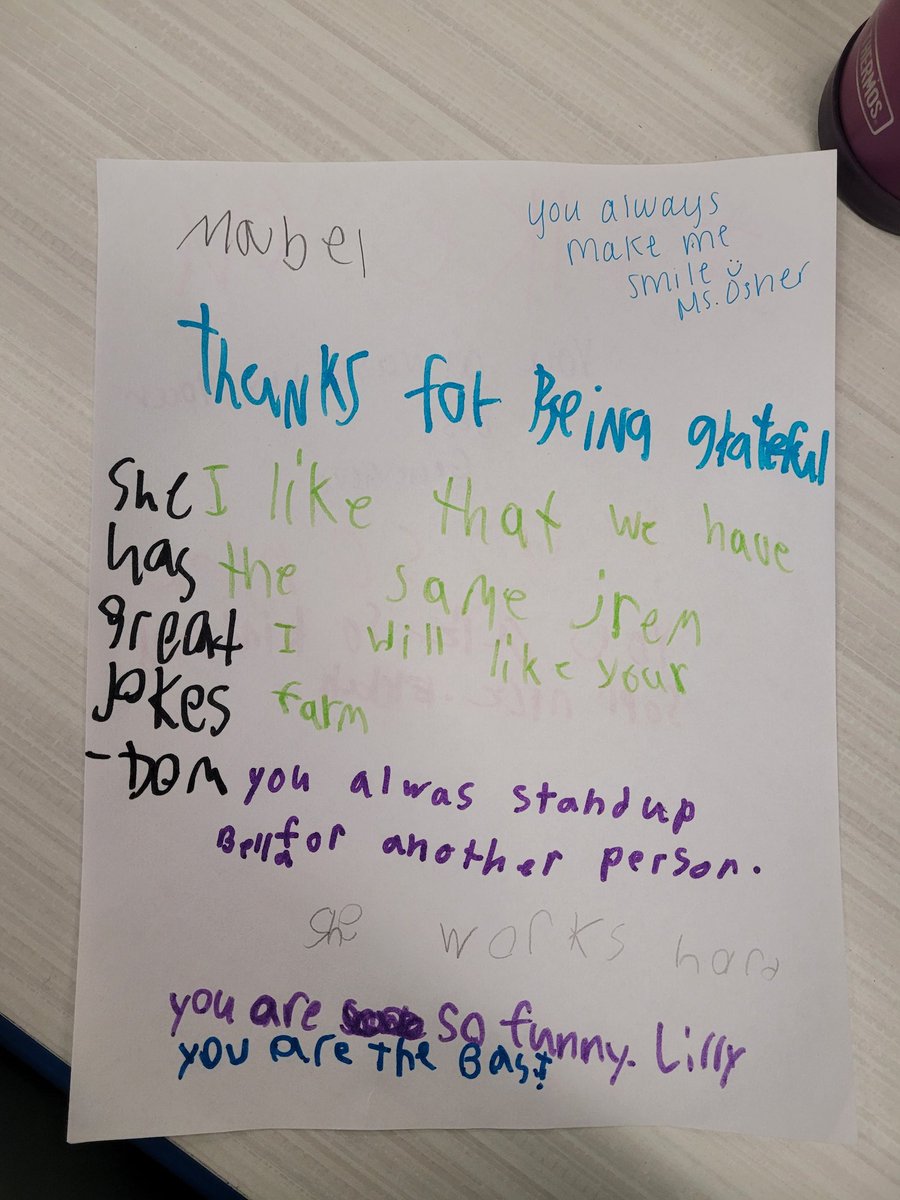 THERMOS
Mabel
you always
make me
smile
Ms. Osher
thanks for Being grateful
She
has
great
jokes
- Dom
I like that we have
the same jrem
I will like your
farm
you alwas standup
for another person.
Bella
She works hard
you are so funny. Lilly
you are the Bast